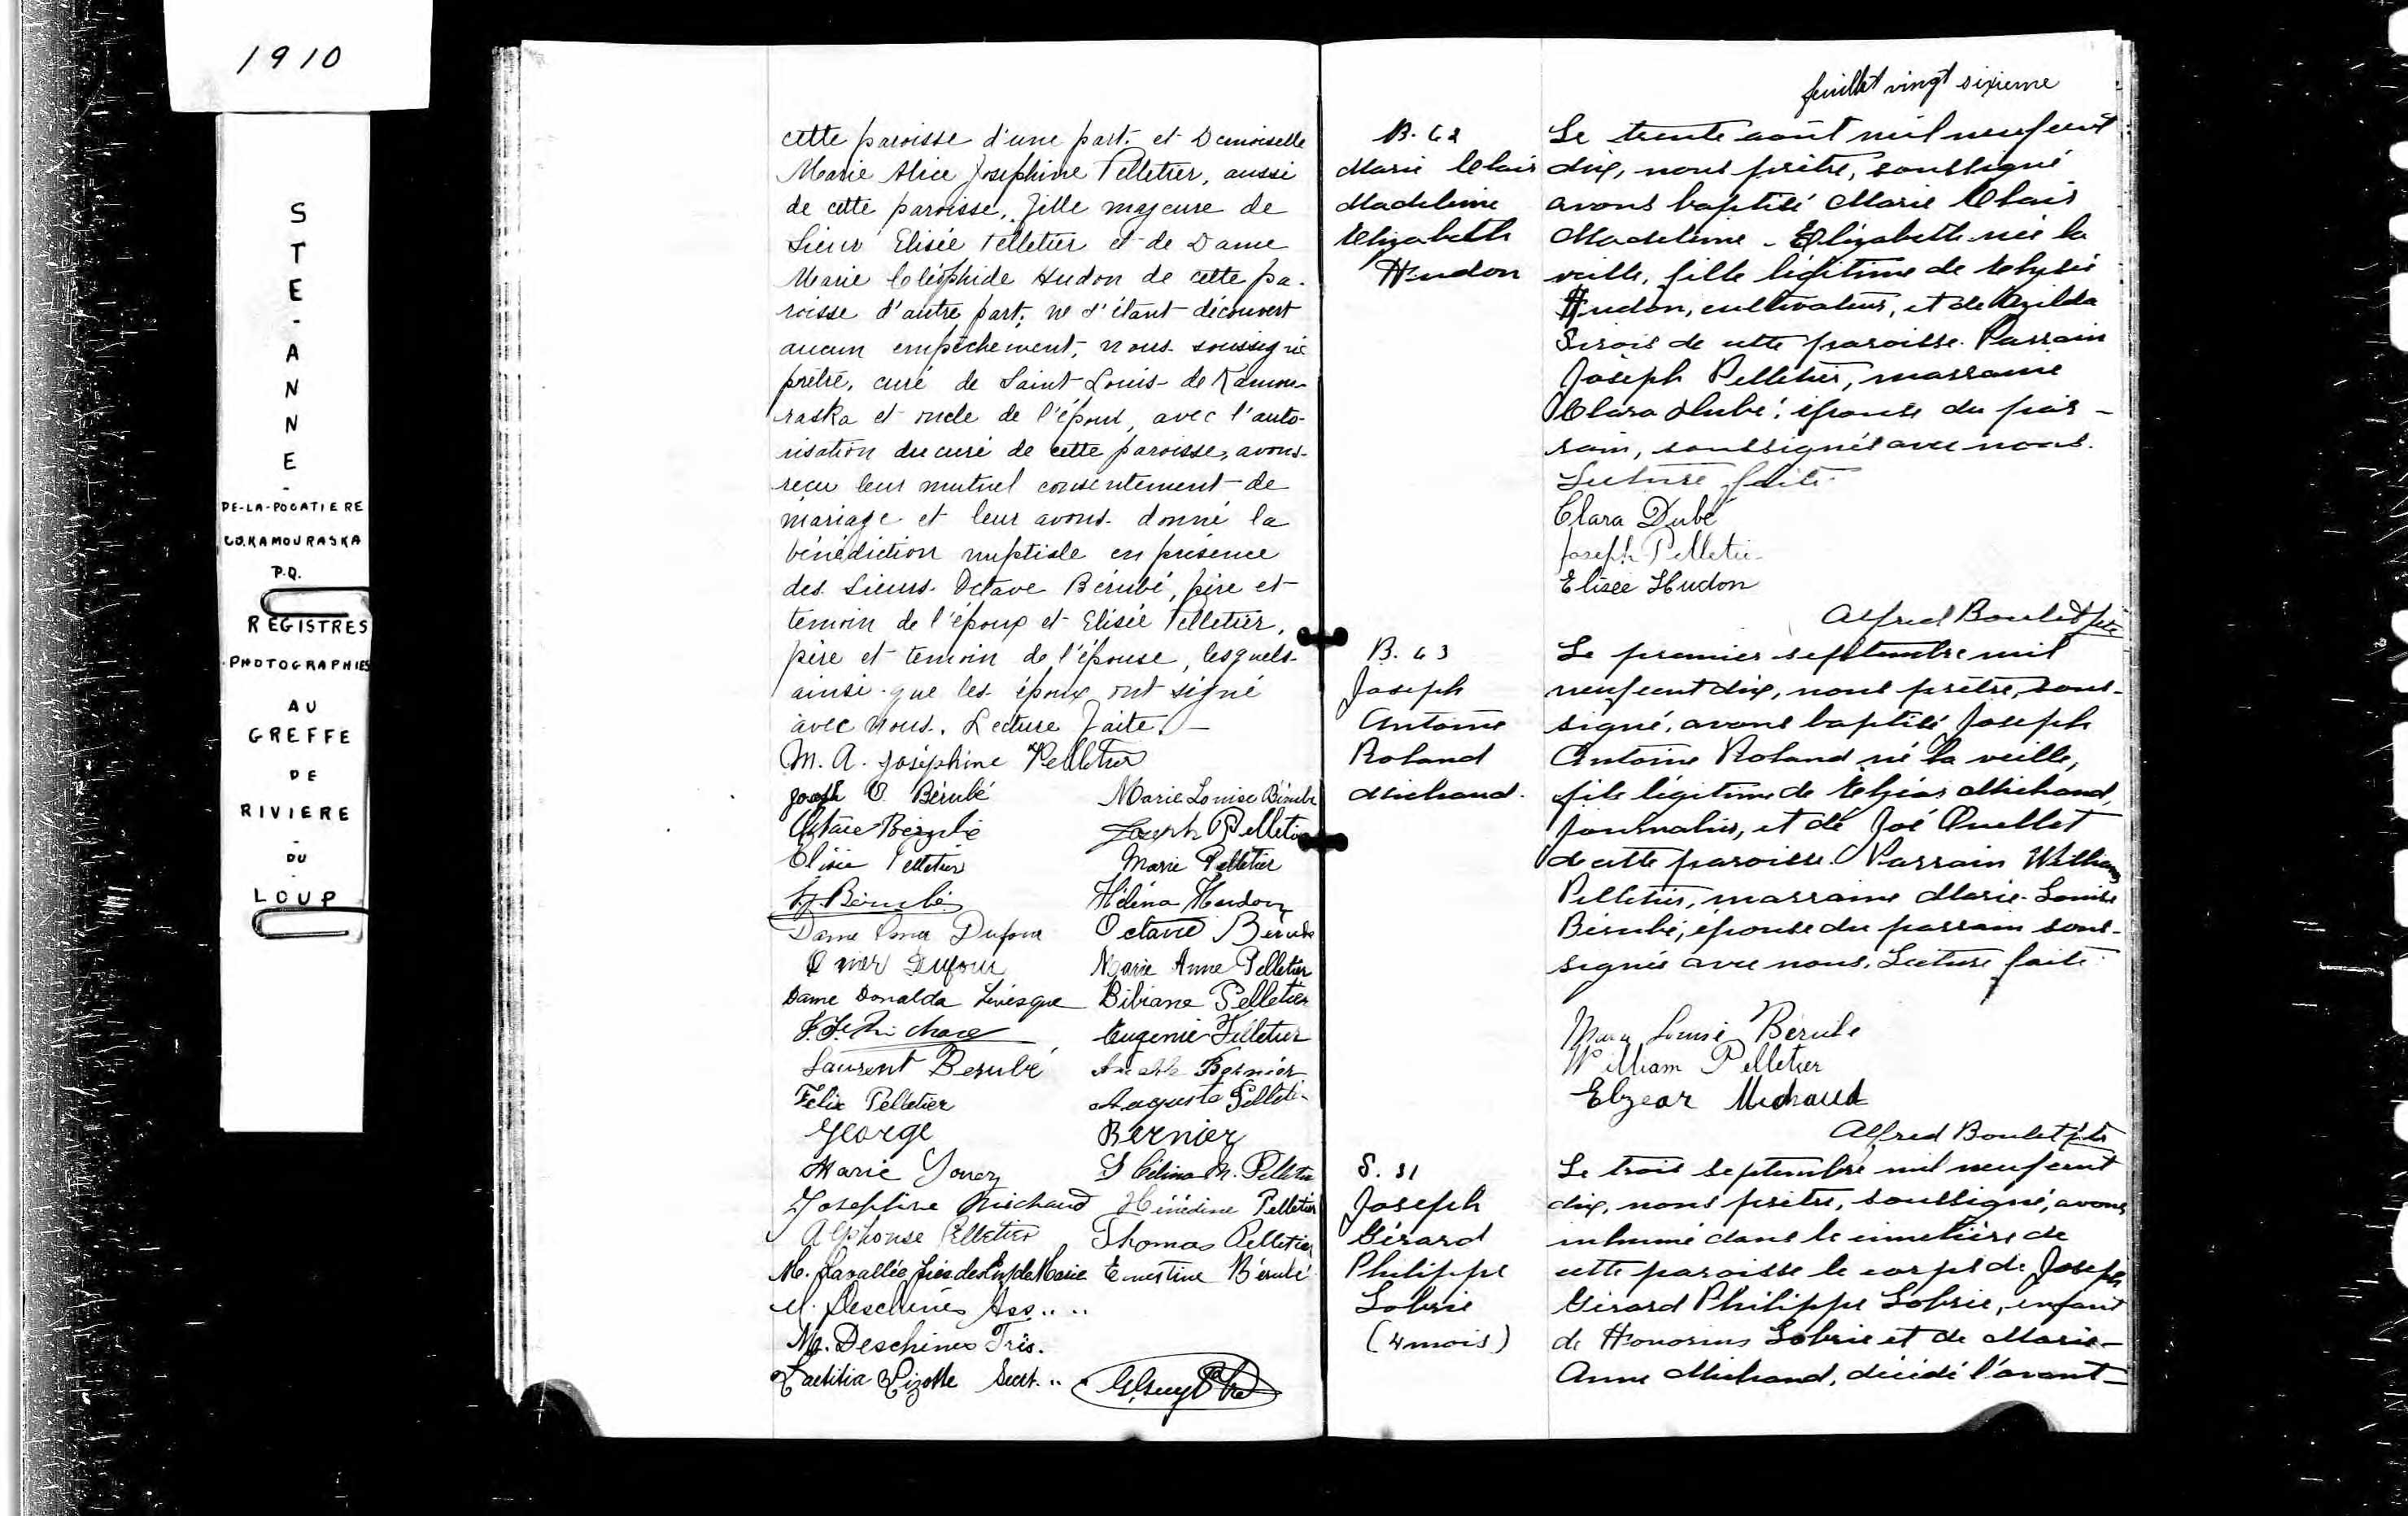 1910
STE-ANNE-
DE-LA-POCATIERE
CO.KAMOURASKA
P.Q.
REGISTRES
PHOTOGRAPHIES
AU
GREFFE
DE
RIVIERE
-
DU
-
LOUP
cette paroisse d'une part; et Demoiselle
Marie Alice Josephine Pelletier, aussi
de cette paroisse, fille majeure de
Sieur Elisée Pelletier et de Dame
Marie Cléophide Hudon de cette pa-
roisse d'autre part; ne s'étant découvert
aucun empêchement, nous soussigné
prêtre, curé de Saint-Louis-de Kamou-
raska et oncle de l'époux, avec l'auto-
risation du curé de cette paroisse, avons
reçu leur mutuel consentement de
mariage et leur avons donné la
bénédiction nuptiale en présence
des Sieurs Octave Bérubé, père et
temoin de l'époux et Elisée Pelletier,
père et temoin de l'épouse, lesquels
ainsi que les époux ont signé
avec nous. Lecture faite.
M. A. Joséphine Pelletier
Joseph O. Bérubé Marie Louise Bérubé
Octave Bérubé Joseph Pelletier
Elisée Pelletier Marie Pelletier
Bérubé Héléna Hudon
Dame Dufour Octave Bérubé
Omer Dufour Marie Anne Pelletier
Dame Donalda Lévesque Bibiane Pelletier
Michaud Eugenie Pelletier
Laurent Berubé Bernier
Felix Pelletier Augusta Pelletier
George Bernier
Marie Pelletier
Josephine Michaud Pelletier
Alphonse Pelletier Thomas Pelletier
M. Lavallée Marie Ernestine Bérubé
M. Deschênes Ass.
M. Deschênes Trés.
Laetitia Lizotte Secret.
feuillet vingt sixieme
B. 62
Marie Clair
Madeleine
Elizabeth
Hudon
Le trente août mil neuf cent
dix, nous prêtre, soussigné
avons baptisé Marie Clair
Madeleine - Elizabeth née la
veille, fille légitime de Elysée
Hudon, cultivateur, et de Exilda
Sirois de cette paroisse. Parrain
Joseph Pelletier, marraine
Clara Dubé, épouse du par-
rain, soussignés avec nous.
Lecture faite
Clara Dubé
Joseph Pelletier
Elisée Hudon
Alfred Boulet ptre
B. 63
Joseph
Antoine
Roland
Michaud.
Le premier septembre mil
neuf cent dix, nous prêtre, sous-
signé, avons baptisé Joseph
Antoine Roland né la veille,
fils légitime de Elzéar Michaud,
journalier, et de Joé Ouellet
de cette paroisse. Parrain William
Pelletier, marraine Marie-Louise
Bérubé, épouse du parrain sous-
signés avec nous. Lecture faite
Marie Louise Bérubé
William Pelletier
Elzear Michaud
Alfred Boulet ptre
S. 31
Joseph
Gérard
Philippe
Lobrie
(4 mois)
Le trois septembre mil neuf cent
dix, nous prêtre, soussigné, avons
inhumé dans le cimetière de
cette paroisse le corps de Joseph
Gérard Philippe Lobrie, enfant
de Honorius Lobrie et de Marie-
Anne Michaud, décédé l'avant-